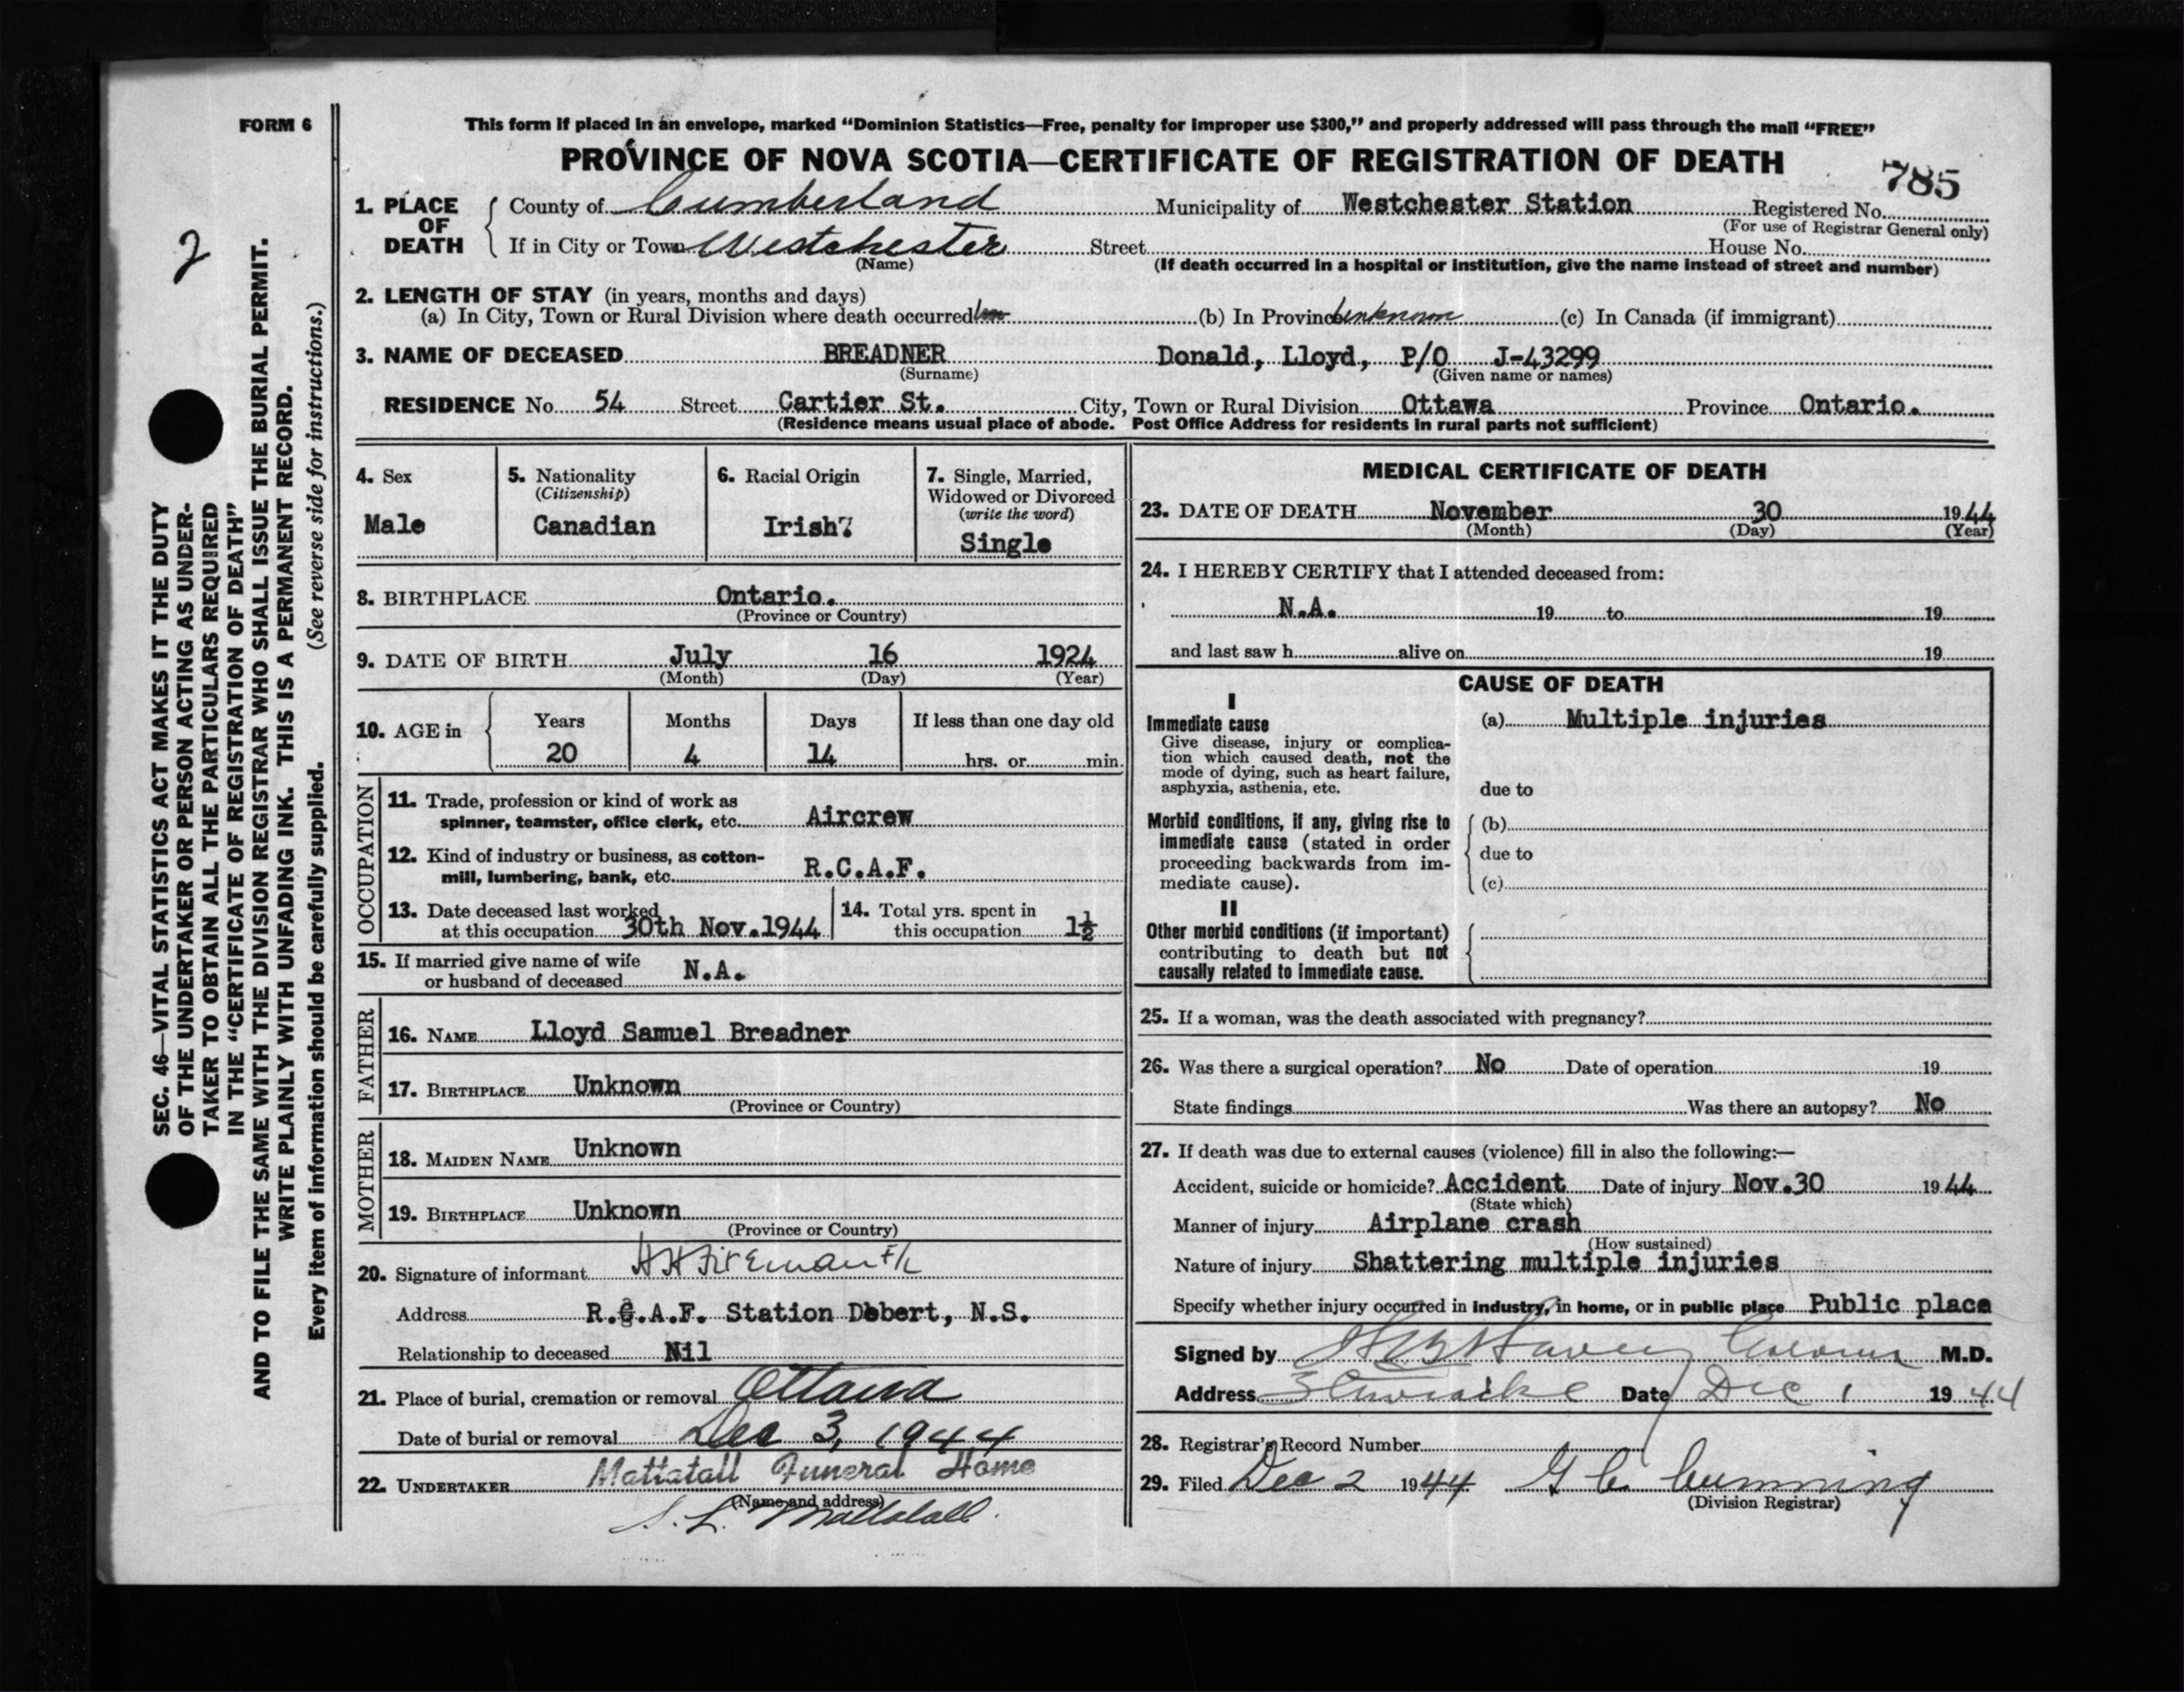 FORM 6
This form if placed in an envelope, marked “Dominion Statistics—Free, penalty for improper use $300,” and properly addressed will pass through the mail “FREE”
PROVINCE OF NOVA SCOTIA—CERTIFICATE OF REGISTRATION OF DEATH
785
1. PLACE OF DEATH
County of Cumberland Municipality of Westchester Station Registered No.
(For use of Registrar General only)
If in City or Town Westchester Street House No.
(Name) (If death occurred in a hospital or institution, give the name instead of street and number)
2. LENGTH OF STAY (in years, months and days)
(a) In City, Town or Rural Division where death occurred (b) In Province unknown (c) In Canada (if immigrant)
3. NAME OF DECEASED BREADNER Donald, Lloyd, P/O J-43299
(Surname) (Given name or names)
RESIDENCE No. 54 Street Cartier St. City, Town or Rural Division Ottawa Province Ontario.
(Residence means usual place of abode. Post Office Address for residents in rural parts not sufficient)
4. Sex
Male
5. Nationality
(Citizenship)
Canadian
6. Racial Origin
Irish?
7. Single, Married,
Widowed or Divorced
(write the word)
Single
8. BIRTHPLACE Ontario.
(Province or Country)
9. DATE OF BIRTH July 16 1924
(Month) (Day) (Year)
10. AGE in Years Months Days If less than one day old
20 4 14 hrs. or min.
OCCUPATION
11. Trade, profession or kind of work as
spinner, teamster, office clerk, etc. Aircrew
12. Kind of industry or business, as cotton-
mill, lumbering, bank, etc. R.C.A.F.
13. Date deceased last worked
at this occupation 30th Nov.1944
14. Total yrs. spent in
this occupation 1½
15. If married give name of wife
or husband of deceased N.A.
FATHER
16. NAME Lloyd Samuel Breadner
17. BIRTHPLACE Unknown
(Province or Country)
MOTHER
18. MAIDEN NAME Unknown
19. BIRTHPLACE Unknown
(Province or Country)
20. Signature of informant
Address R.C.A.F. Station Debert, N.S.
Relationship to deceased Nil
21. Place of burial, cremation or removal Ottawa
Date of burial or removal Dec 3, 1944
22. UNDERTAKER Mattatall Funeral Home
(Name and address)
S. L. Mattatall.
MEDICAL CERTIFICATE OF DEATH
23. DATE OF DEATH November 30 1944
(Month) (Day) (Year)
24. I HEREBY CERTIFY that I attended deceased from:
N.A. 19 to 19
and last saw h alive on 19
CAUSE OF DEATH
I
Immediate cause (a) Multiple injuries
Give disease, injury or complica-
tion which caused death, not the
mode of dying, such as heart failure,
asphyxia, asthenia, etc. due to
Morbid conditions, if any, giving rise to (b)
immediate cause (stated in order
proceeding backwards from im- due to
mediate cause). (c)
II
Other morbid conditions (if important)
contributing to death but not
causally related to immediate cause.
25. If a woman, was the death associated with pregnancy?
26. Was there a surgical operation? No Date of operation 19
State findings Was there an autopsy? No
27. If death was due to external causes (violence) fill in also the following:—
Accident, suicide or homicide? Accident Date of injury Nov.30 1944
(State which)
Manner of injury Airplane crash
(How sustained)
Nature of injury Shattering multiple injuries
Specify whether injury occurred in industry, in home, or in public place Public place
Signed by M.D.
Address Date Dec 1 1944
28. Registrar's Record Number
29. Filed Dec 2 1944 G C Cumming
(Division Registrar)
2
SEC. 46—VITAL STATISTICS ACT MAKES IT THE DUTY
OF THE UNDERTAKER OR PERSON ACTING AS UNDER-
TAKER TO OBTAIN ALL THE PARTICULARS REQUIRED
IN THE “CERTIFICATE OF REGISTRATION OF DEATH”
AND TO FILE THE SAME WITH THE DIVISION REGISTRAR WHO SHALL ISSUE THE BURIAL PERMIT.
WRITE PLAINLY WITH UNFADING INK. THIS IS A PERMANENT RECORD.
Every item of information should be carefully supplied. (See reverse side for instructions.)